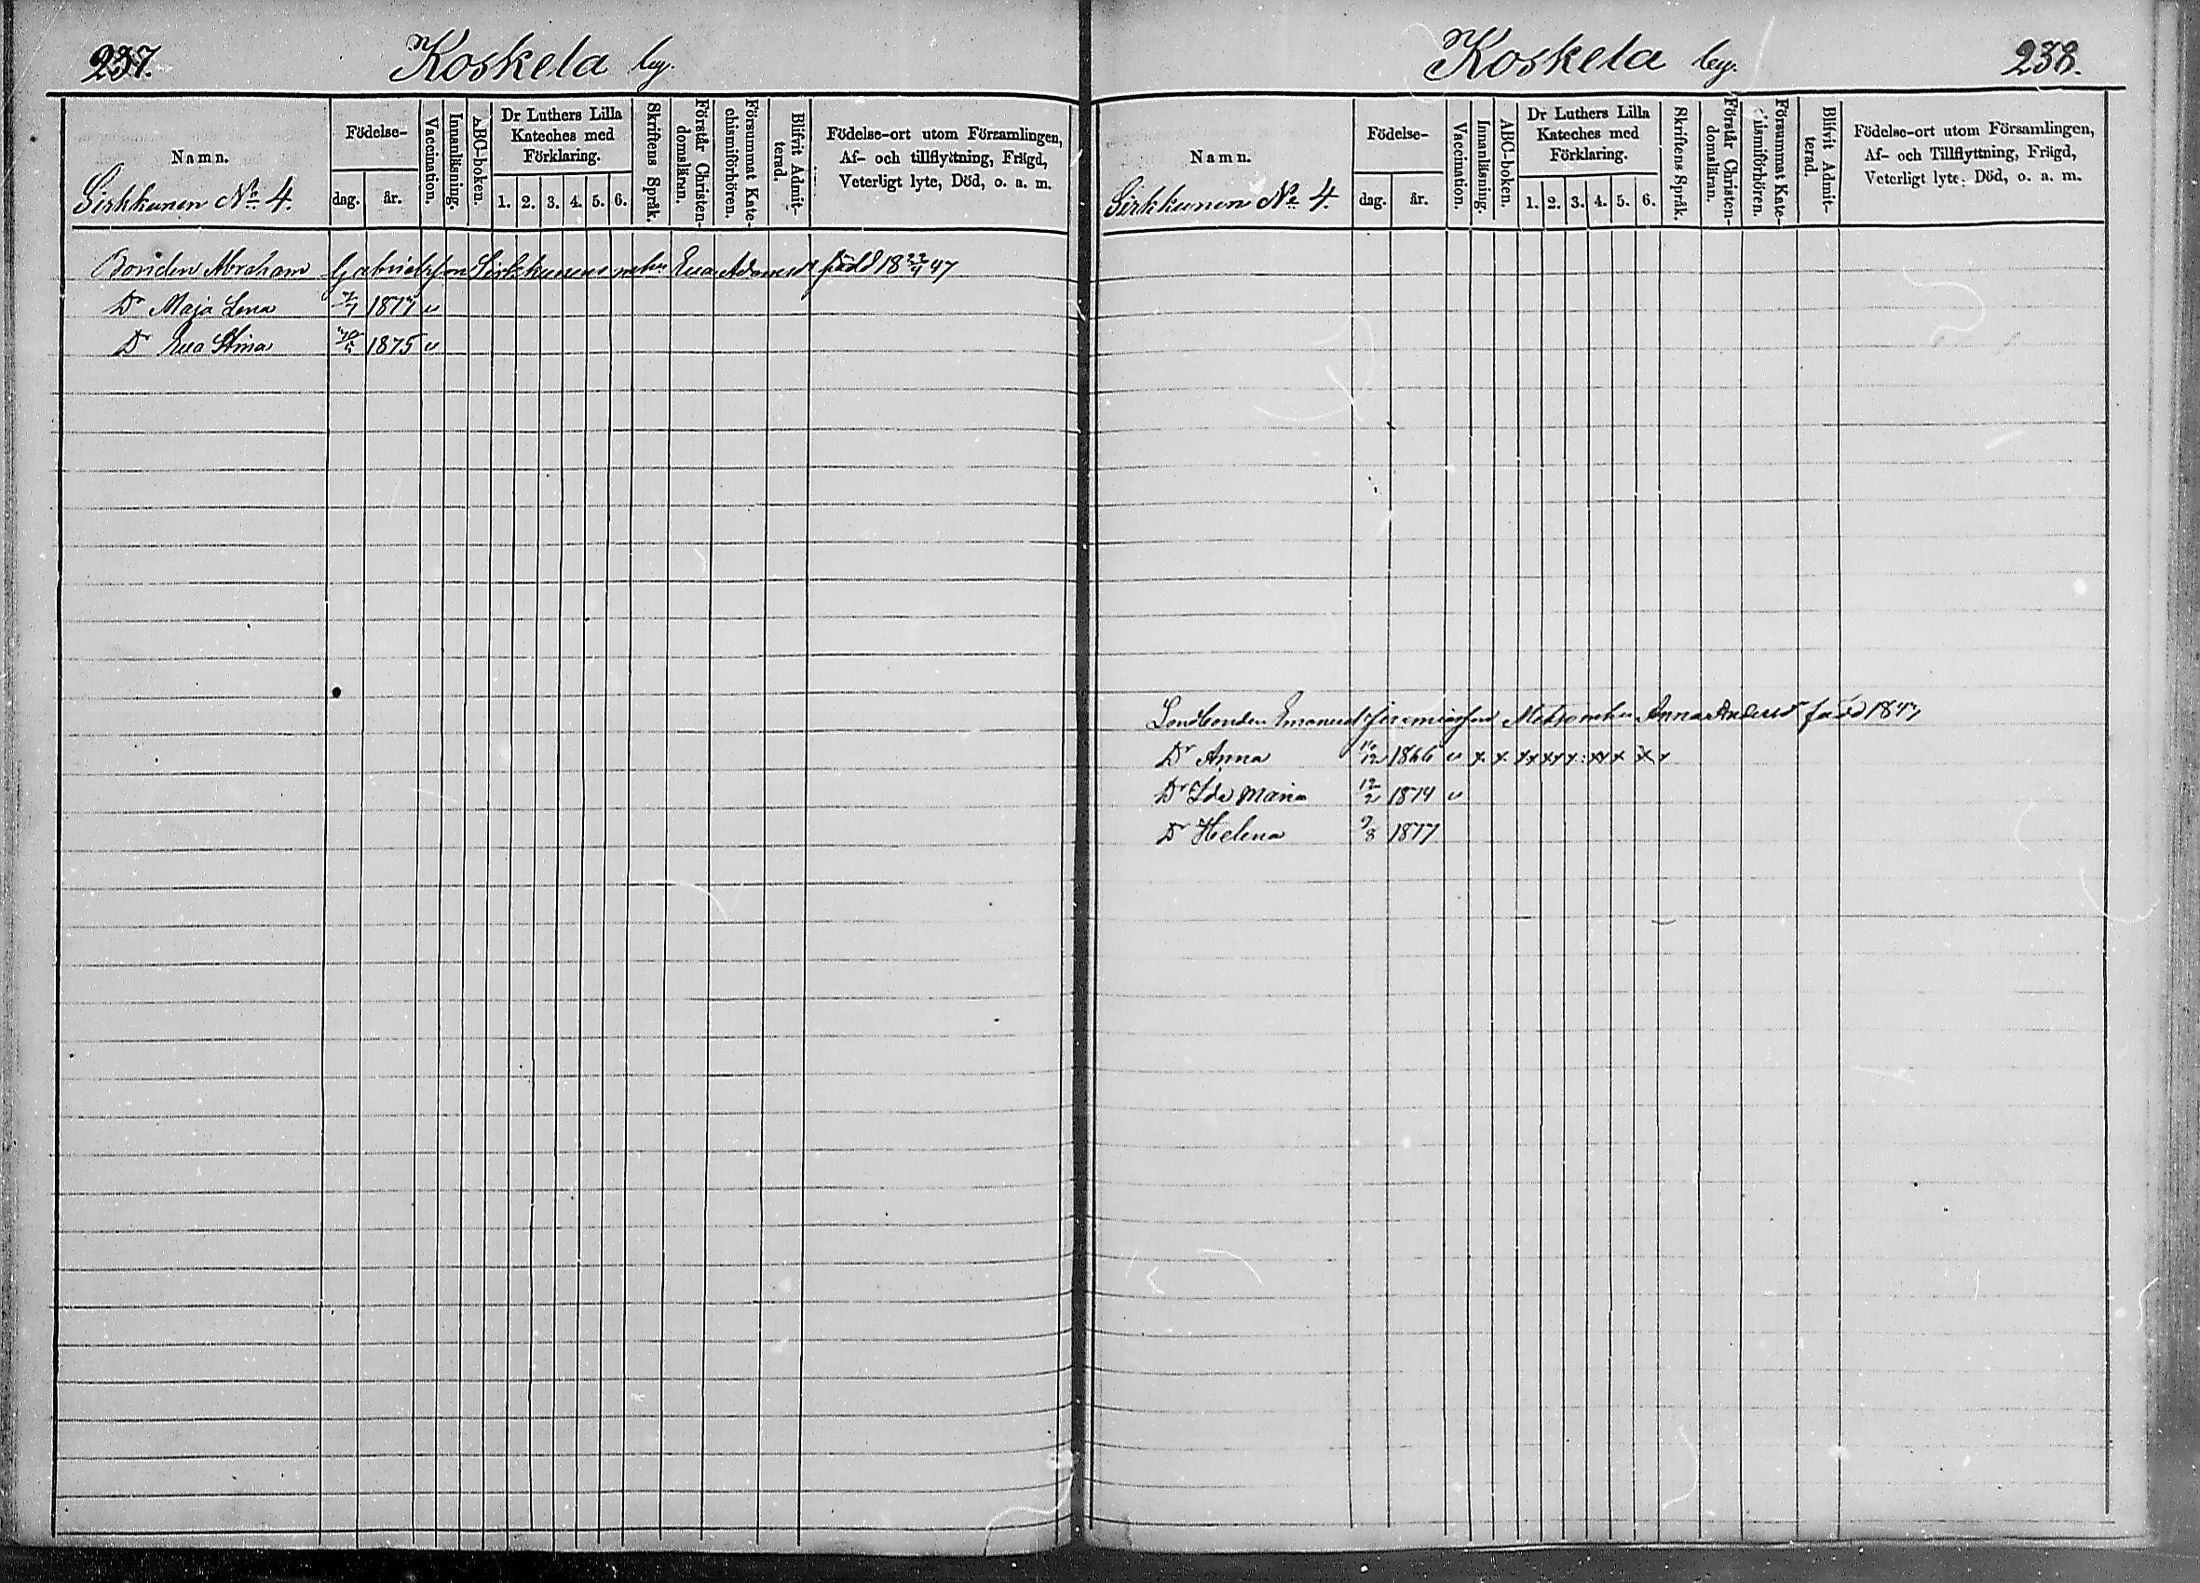 237. Koskela by.
Namn.
Födelse-
dag. år.
Vaccination.
Innanläsning.
ABC-boken.
Dr Luthers Lilla
Kateches med
Förklaring.
1. 2. 3. 4. 5. 6.
Skriftens Språk.
Förstår Christen-
domsläran.
Försummat Kate-
chismiförhören.
Blifvit Admit-
terad.
Födelse-ort utom Församlingen,
Af- och tillflyttning, Frägd,
Veterligt lyte, Död, o. a. m.
Sirkkunen No. 4.
Bonden Abraham Gabrielsson Sirkkunens Eva Adamsdr född 18 22/4 47
Dr Maja Lena 1877 v
Dr Eva Stina 1875 v
Koskela by. 238.
Namn.
Födelse-
dag. år.
Vaccination.
Innanläsning.
ABC-boken.
Dr Luthers Lilla
Kateches med
Förklaring.
1. 2. 3. 4. 5. 6.
Skriftens Språk.
Förstår Christen-
domsläran.
Försummat Kate-
chismiförhören.
Blifvit Admit-
terad.
Födelse-ort utom Församlingen,
Af- och Tillflyttning, Frägd,
Veterligt lyte, Död, o. a. m.
Sirkkunen No. 4.
Landbonden Emanuel Jeremiasson Anna Andersdr född 1847
Dr Anna 1866 v x x x x x x x x x x x
Dr Ida Maria 12/2 1874 v
Dr Helena 9/8 1877